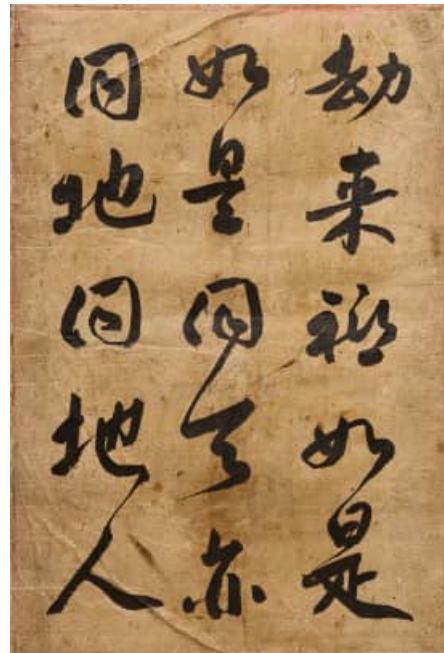 劫来如是
如是同天亦
同地同地人